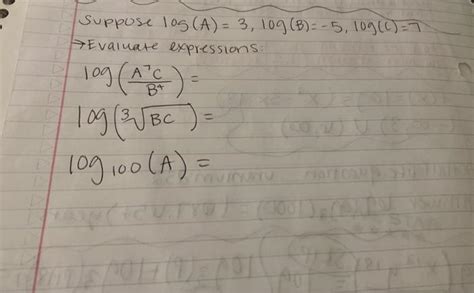 Suppose log(A) = 3, log(B) = -5, log(C) = 7
→ Evaluate expressions:
log(A⁷C/B⁴) =
log(∛BC) =
log₁₀₀(A) =